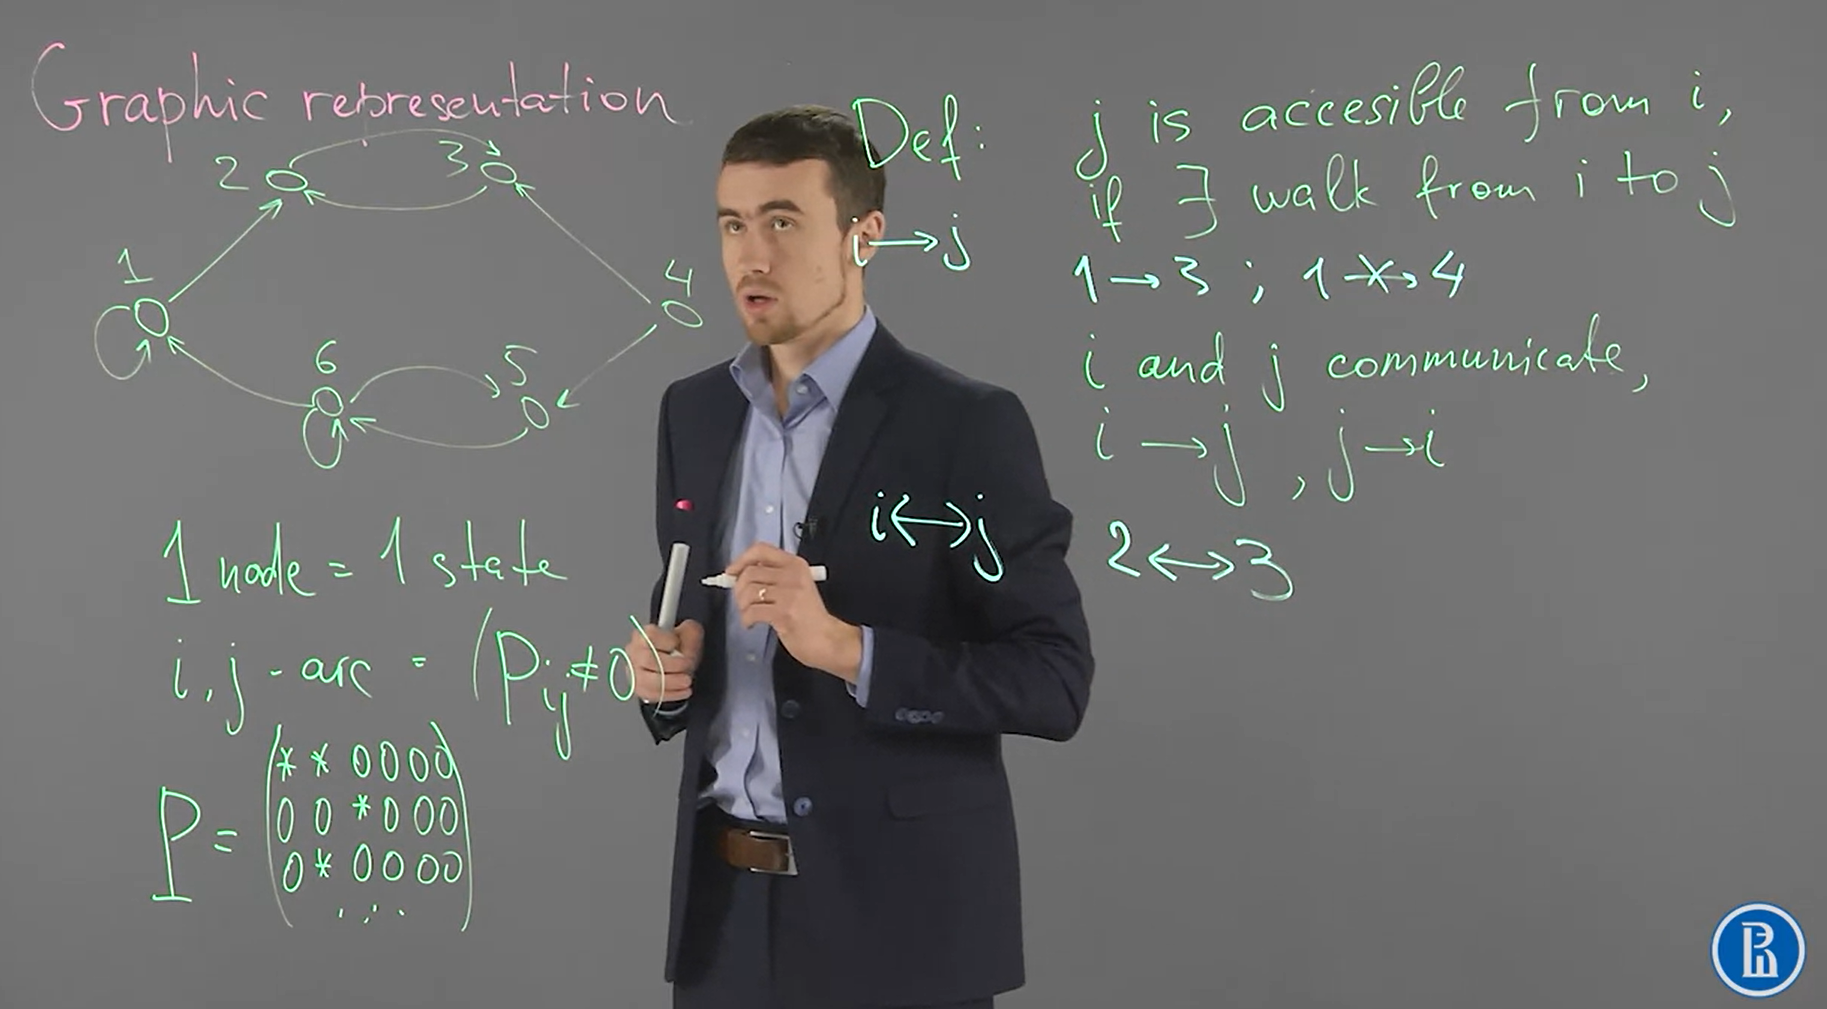 Graphic representation
2
3
1
4
6
5
1 node = 1 state
i, j - arc = (P_ij ≠ 0)
P = (* * 0 0 0 0
0 0 * 0 0 0
0 * 0 0 0 0
...)
Def: j is accesible from i,
if ∃ walk from i to j
i → j
1 → 3 ; 1 ↛ 4
i and j communicate,
i → j , j → i
i ↔ j 2 ↔ 3